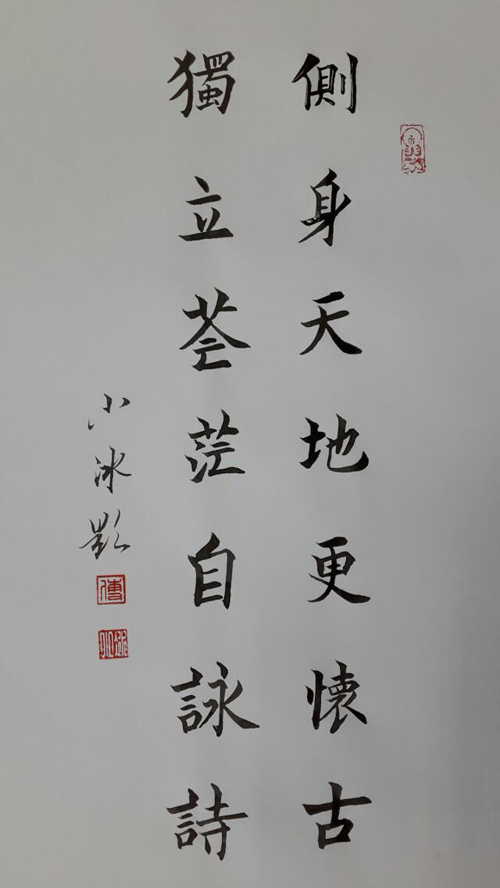 側身天地更懷古
獨立蒼茫自詠詩
小冰
傅